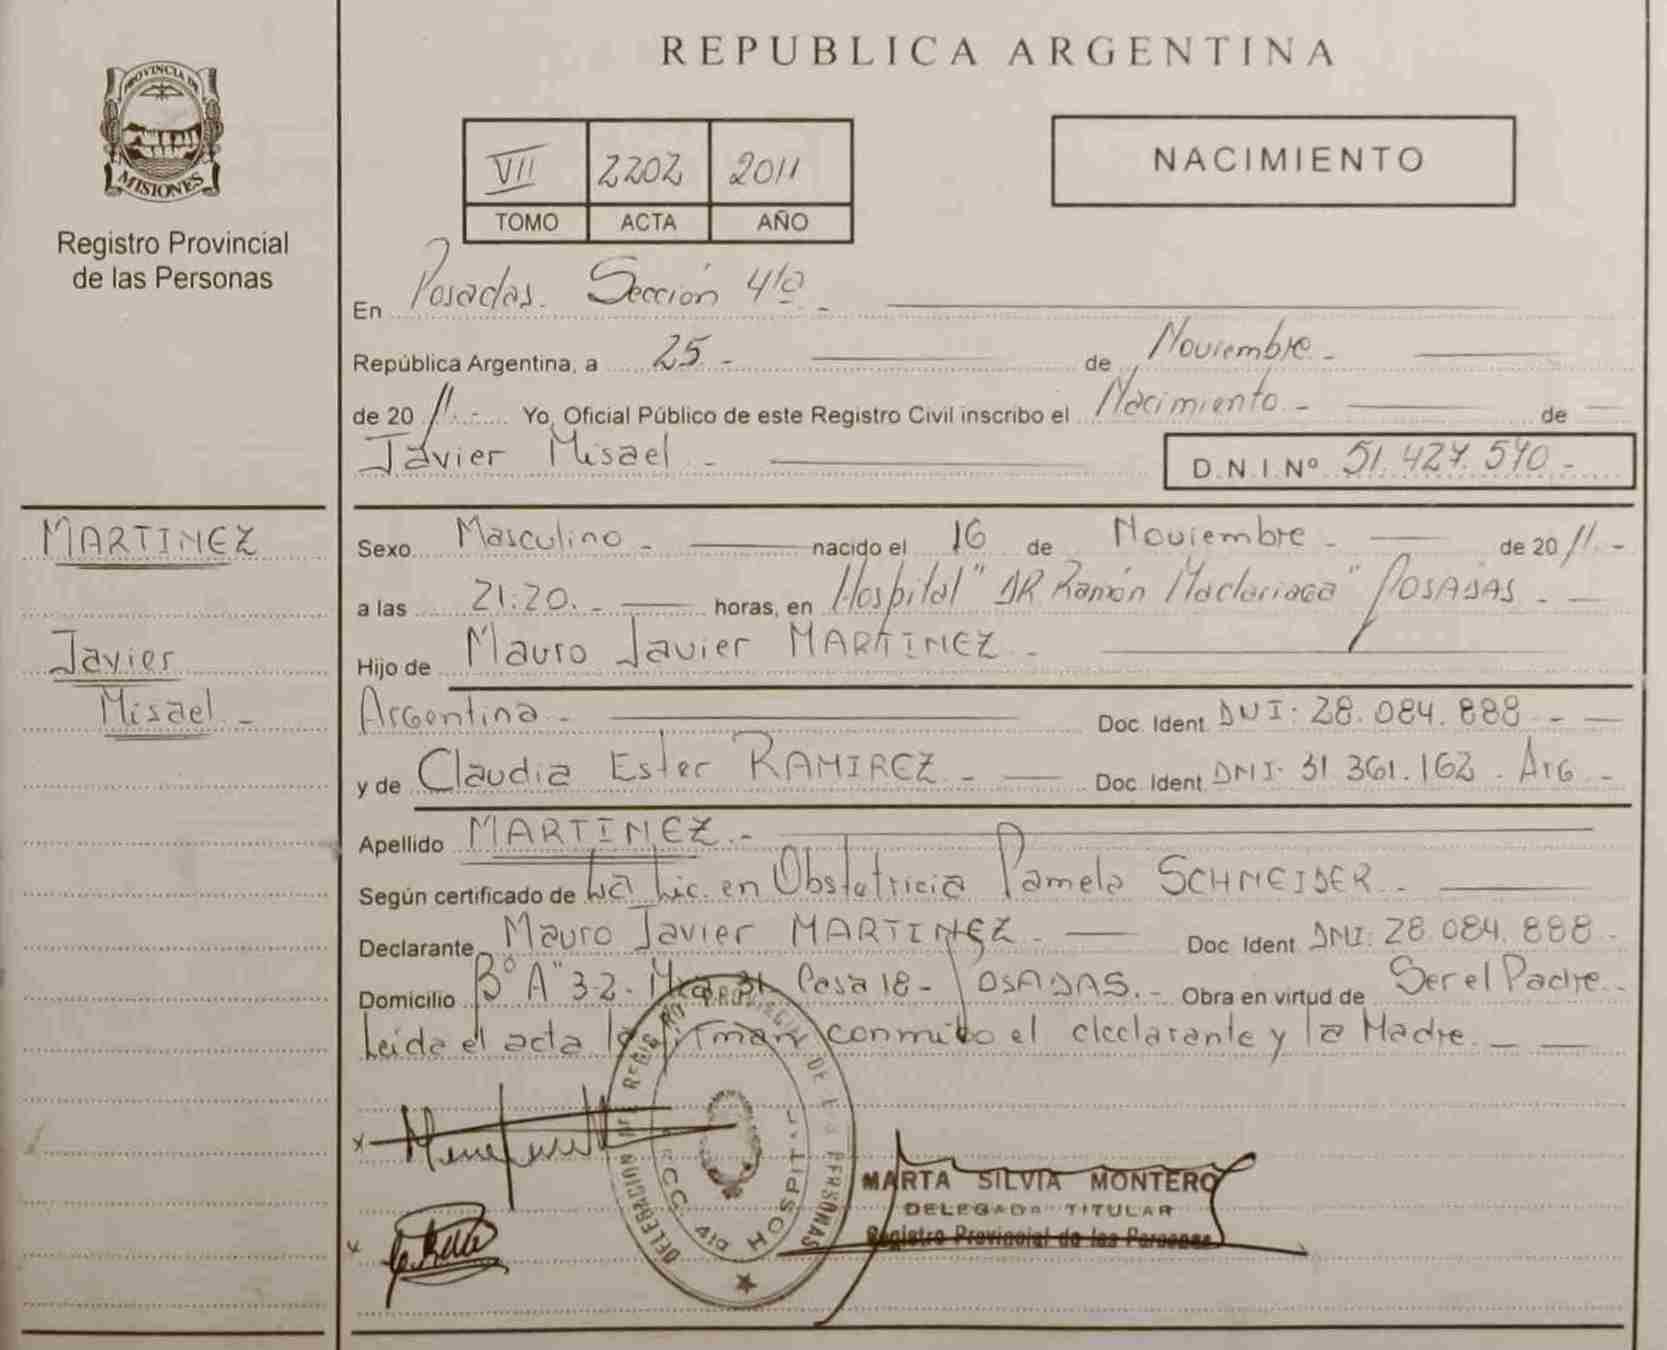 REPUBLICA ARGENTINA
PROVINCIA DE
MISIONES
Registro Provincial
de las Personas
VII 2202 2011
TOMO ACTA AÑO
NACIMIENTO
En Posadas. Sección 4ta -
República Argentina, a 25 - de Noviembre -
de 2011.- Yo, Oficial Público de este Registro Civil inscribo el Nacimiento - de
Javier Misael - D.N.I Nº 51.427.570 -
MARTINEZ
Javier
Misael -
Sexo Masculino - nacido el 16 de Noviembre - de 2011.-
a las 21:20. - horas, en Hospital "DR Ramón Madariaga" POSADAS - -
Hijo de Mauro Javier MARTINEZ -
Argentina - Doc. Ident. DNI: 28.084.888 - -
y de Claudia Ester RAMIREZ - Doc. Ident. DNI: 31.361.162 - Arg -
Apellido MARTINEZ.-
Según certificado de La Lic. en Obstetricia Pamela SCHNEIDER -
Declarante Mauro Javier MARTINEZ - Doc. Ident. DNI: 28.084.888 -
Domicilio Bº "A" 3-2 - Casa 18 - POSADAS. - Obra en virtud de Ser el Padre -
Leida el acta la firman conmigo el declarante y la Madre. - -
DELEGACION REGISTRO PROVINCIAL DE LAS PERSONAS
HOSPITAL
MARTA SILVIA MONTERO
DELEGADA TITULAR
Registro Provincial de las Personas